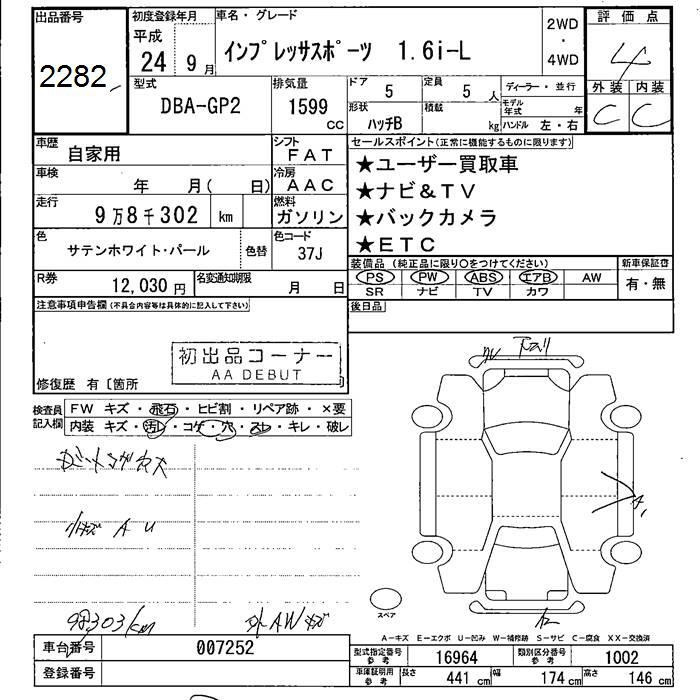 出品番号
2282
初度登録年月
平成
24年9月
車名・グレード
インプレッサスポーツ 1.6i-L
2WD
・
4WD
評価点
4
型式
DBA-GP2
排気量
1599
CC
ドア
5
定員
5人
ディーラー・並行
外装 内装
C C
形状
ハッチB
積載
kg
モデル年式
年
ハンドル 左・右
車歴
自家用
シフト
FAT
車検
年 月( 日)
冷房
AAC
走行
9万8千302 km
燃料
ガソリン
色
サテンホワイト・パール
色替
色コード
37J
R券
12,030円
名変通知期限
月 日
セールスポイント(正常に機能するものに限ります)
★ユーザー買取車
★ナビ&TV
★バックカメラ
★ETC
装備品(純正品に限り○をつけてください)
新車保証書
PS PW ABS エアB AW
有・無
SR ナビ TV カワ
後日品
注意事項申告欄(不具合内容等は具体的に記入して下さい)
初出品コーナー
AA DEBUT
修復歴 有〔箇所
検査員
記入欄
FW キズ・飛石・ヒビ割・リペア跡・×要
内装 キズ・汚レ・コゲ・穴・スレ・キレ・破レ
小キズ A U
98303km
外AWキズ
スペア
A-キズ E-エクボ U-凹み W-補修跡 S-サビ C-腐食 XX-交換済
車台番号
007252
登録番号
型式指定番号
参考
16964
類別区分番号
参考
1002
車庫証明用
参考
長さ
441 cm
幅
174 cm
高さ
146 cm